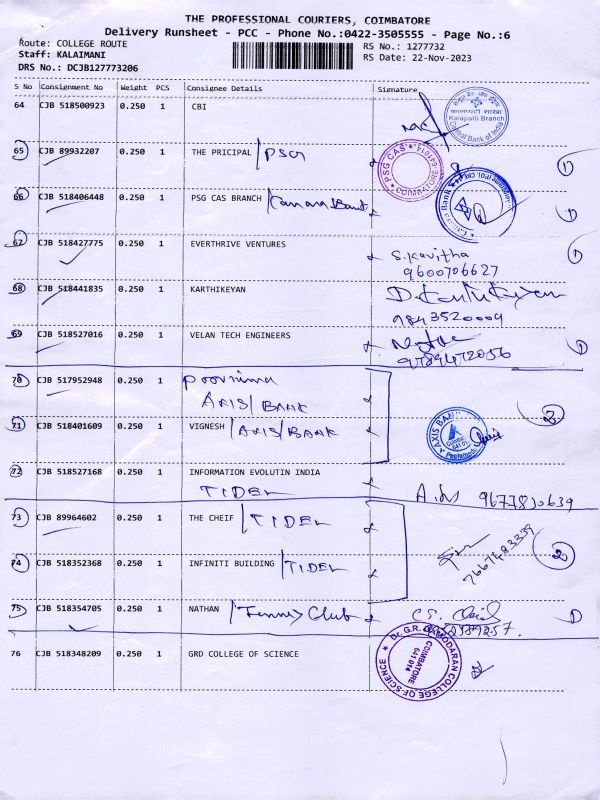 THE PROFESSIONAL COURIERS, COIMBATORE
Delivery Runsheet - PCC - Phone No.:0422-3505555 - Page No.:6
Route: COLLEGE ROUTE
Staff: KALAIMANI
DRS No.: DCJB127773206
RS No.: 1277732
RS Date: 22-Nov-2023
S No Consignment No Weight PCS Consignee Details Signature
64 CJB 518500923 0.250 1 CBI
Kalapatti Branch
Central Bank of India
65 CJB 89932207 0.250 1 THE PRICIPAL / PSG 1
PSG CAS COIMBATORE-641014
66 CJB 518406448 0.250 1 PSG CAS BRANCH / Canara Bank 1
67 CJB 518427775 0.250 1 EVERTHRIVE VENTURES S. Kavitha 1
9600706627
68 CJB 518441835 0.250 1 KARTHIKEYAN
9843520009
69 CJB 518527016 0.250 1 VELAN TECH ENGINEERS 1
9789472056
70 CJB 517952948 0.250 1 Poornima
AXIS / BANK 2
71 CJB 518401609 0.250 1 VIGNESH / AXIS / BANK
AXIS BANK
72 CJB 518527168 0.250 1 INFORMATION EVOLUTIN INDIA
TIDEL
73 CJB 89964602 0.250 1 THE CHEIF / TIDEL
7667483339 2
74 CJB 518352368 0.250 1 INFINITI BUILDING / TIDEL
75 CJB 518354705 0.250 1 NATHAN / Tennis Club 1
76 CJB 518348209 0.250 1 GRD COLLEGE OF SCIENCE
Dr. G.R. DAMODARAN COLLEGE OF SCIENCE
COIMBATORE
641 014